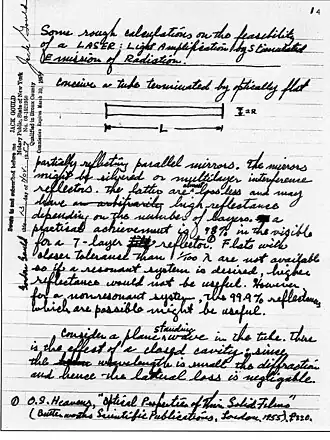 1
Some rough calculations on the feasibility
of a LASER: Light Amplification by Stimulated
Emission of Radiation.
Conceive a tube terminated by optically flat
L
partially reflecting parallel mirrors. The mirrors
might be silvered or multilayer interference
reflectors. The latter are almost lossless and may
have high reflectance
depending on the number of layers. A
practical achievement is 98% in the visible
for a 7-layer reflector. Flats with
closer tolerance than 1/100 λ are not available
so if a resonant system is desired, higher
reflectance would not be useful. However
for a nonresonant system, the 99.9% reflectances
which are possible might be useful.
Consider a plane standing wave in the tube. There
is the effect of a closed cavity; since
the wavelength is small the diffraction
and hence the lateral loss is negligable.
① O.S. Heavens, "Optical Properties of Thin Solid Films"
(Butterworths Scientific Publications, London, 1955), p220.
JACK GOULD
Notary Public, State of New York
Qualified in Bronx County
Commission Expires March 30, 19
Gordon Gould
Jack Gould